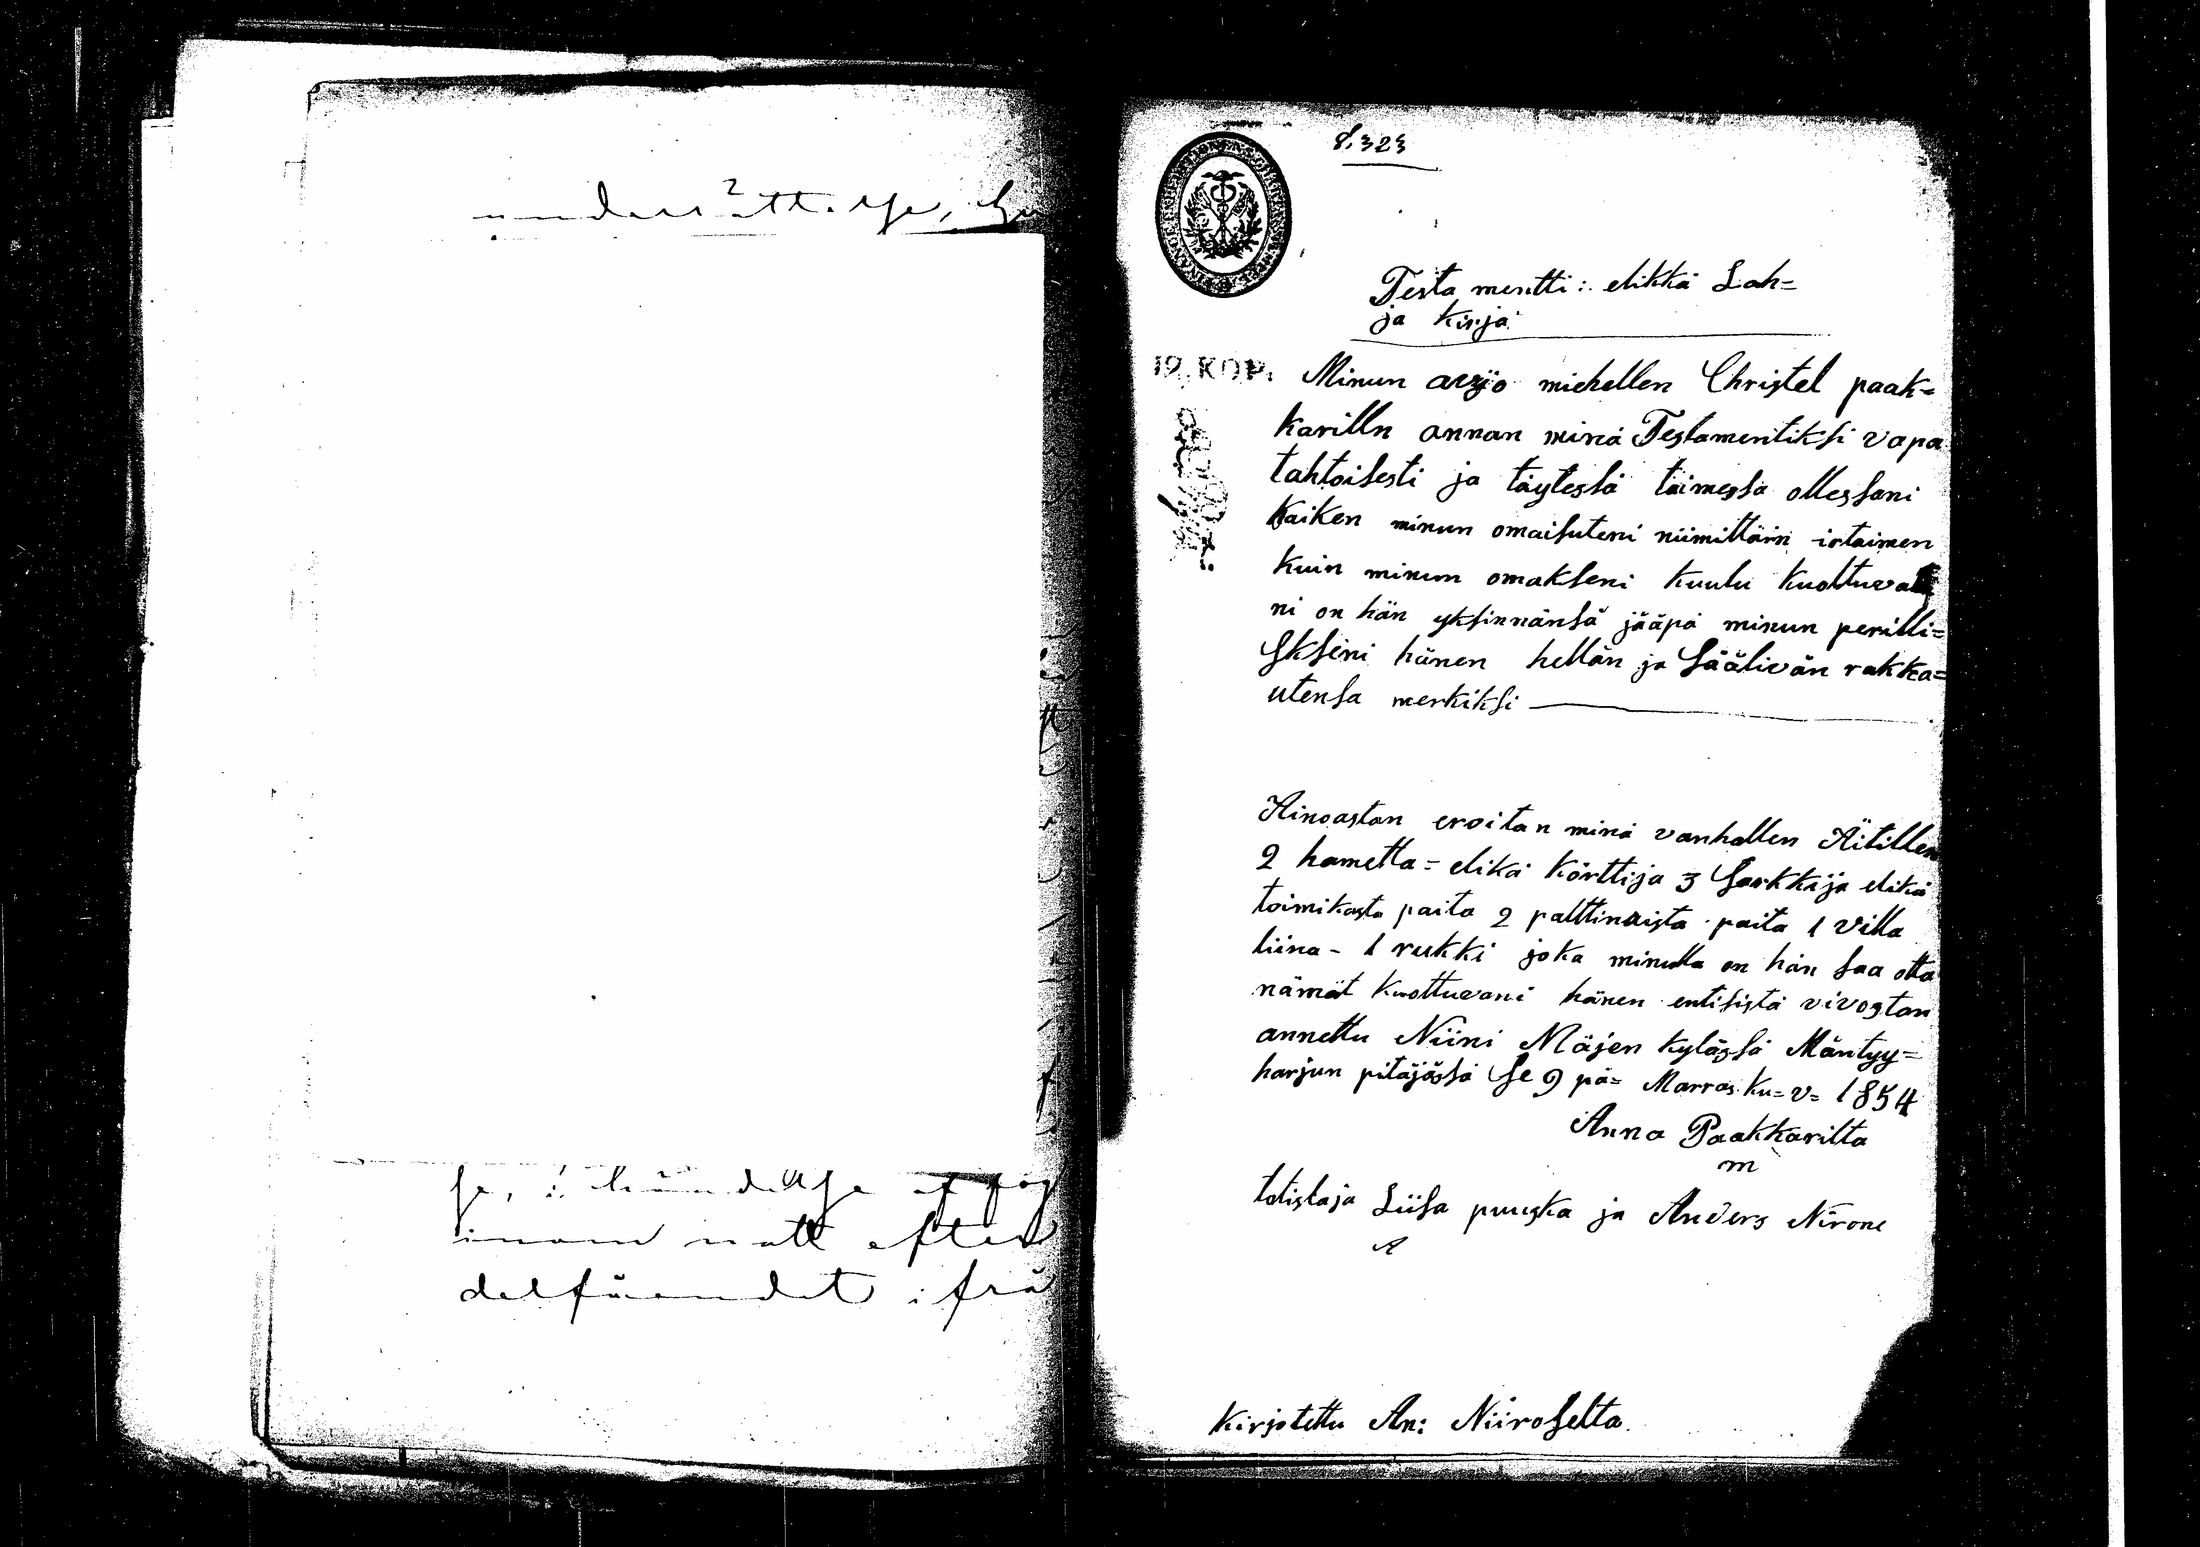 underrättelse,
se, i händelse af
inom natt efter
delfåendet ifrå
S. 323
Testa mentti: elikkä Lah=
ja kirja
12 KOP.
Minun arvio miehellen Christel paak=
karilln annan minä Testamentiksi vapa
tahtoisesti ja täytessä toimessa ollessani
kaiken minun omaisuteni niimittäin irtaimen
kuin minun omakseni kuulu kuoltuva
ni on hän yksinnänsä jääpä minun perilli=
Skseni hänen hellän ja säälivän rakka=
utensa merkiksi
Ainoastan eroitan minä vanhallen Äitillen
2 hametta= elikä körttija 3 sarkkija elikä
toimikasta paita 2 palttinaista paita 1 villa
liina - 1 rukki joka minulla on hän saa otta
nämät kuoltuvani hänen entisistä vivostan
annettu Niini Mäjen kylässä Mäntyy=
harjun pitäjässä se 9 pä= Marras. Ku= v= 1854
Anna Paakkarilta
m
totistaja Liisa puuska ja Anders Nirone
A
Kirjotettu An: Niiroselta.